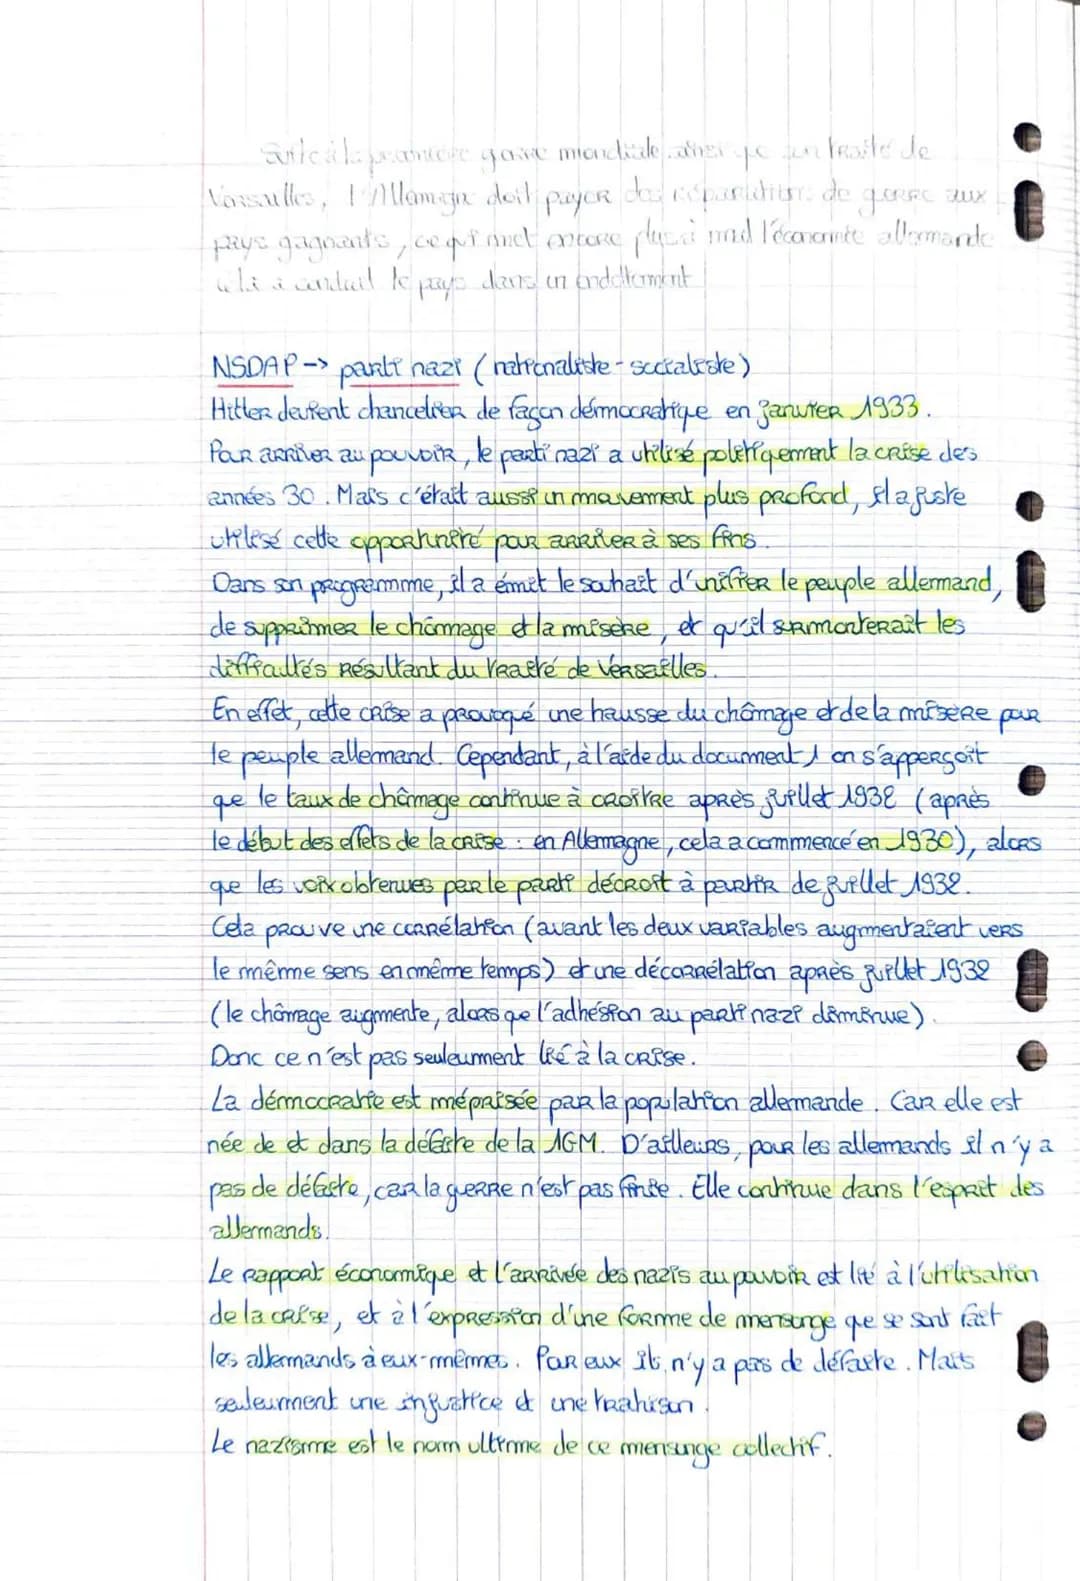 Suite à la première guerre mondiale ainsi que un traité de
Versailles, l'Allemagne doit payer des réparations de guerre aux
pays gagnants, ce qui met encore plus à mal l'économie allemande
cela a conduit le pays dans un endettement
NSDAP -> parti nazi (nationaliste - socialiste)
Hitler devient chancelier de façon démocratique en janvier 1933.
Pour arriver au pouvoir, le parti nazi a utilisé politiquement la crise des
années 30. Mais c'était aussi un mouvement plus profond, il a juste
utilisé cette opportunité pour arriver à ses fins.
Dans son programme, il a émit le souhait d'unifier le peuple allemand,
de supprimer le chômage et la misère, et qu'il surmonterait les
difficultés résultant du traité de Versailles.
En effet, cette crise a provoqué une hausse du chômage et de la misère pour
le peuple allemand. Cependant, à l'aide du document 1 on s'apperçoit
que le taux de chômage continue à croître après juillet 1932 (après
le début des effets de la crise : en Allemagne, cela a commencé en 1930), alors
que les voix obtenues par le parti décroit à partir de juillet 1932.
Cela prouve une corrélation (avant les deux variables augmentaient vers
le même sens en même temps) et une décorrélation après juillet 1932
(le chômage augmente, alors que l'adhésion au parti nazi diminue).
Donc ce n'est pas seulement lié à la crise.
La démocratie est méprisée par la population allemande. Car elle est
née de et dans la défaite de la 1GM. D'ailleurs, pour les allemands il n'y a
pas de défaite, car la guerre n'est pas finie. Elle continue dans l'esprit des
allemands.
Le rapport économique et l'arrivée des nazis au pouvoir est lié à l'utilisation
de la crise, et à l'expression d'une forme de mensonge que se sont fait
les allemands à eux-mêmes. Pour eux il n'y a pas de défaite. Mais
seulement une injustice et une trahison.
Le nazisme est le nom ultime de ce mensonge collectif.